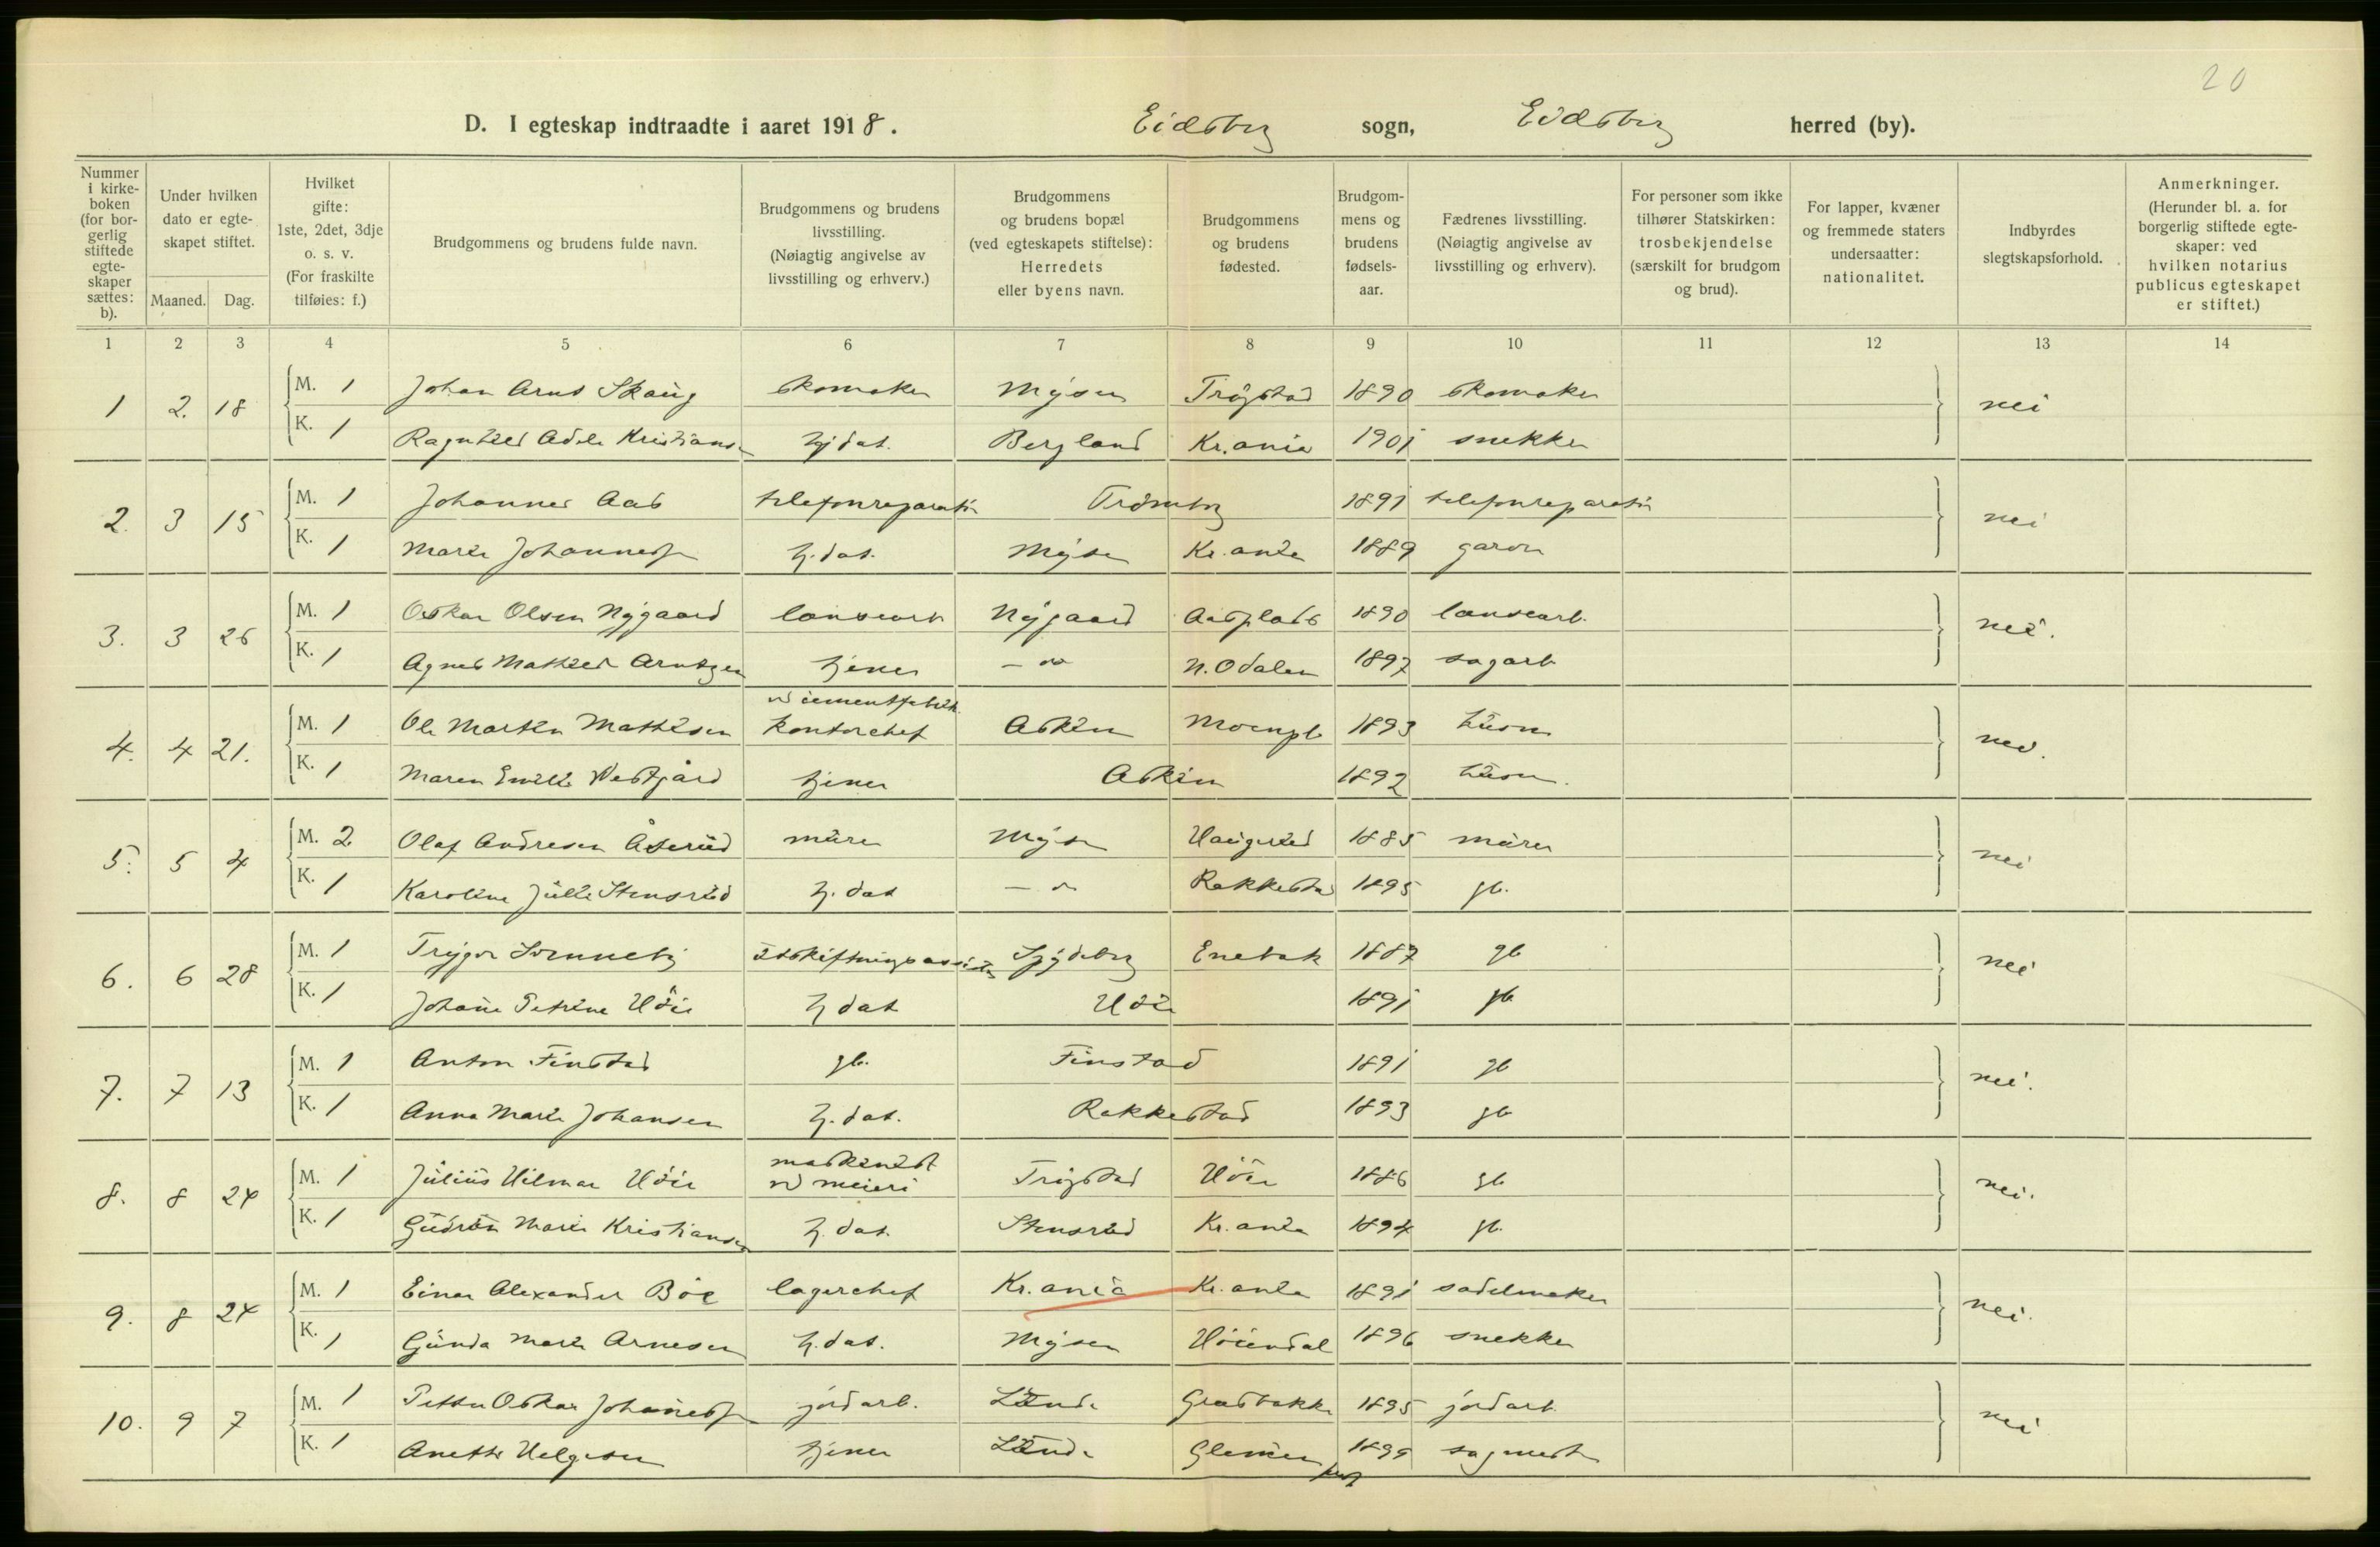 20
D. I egteskap indtraadte i aaret 1918. Eidsberg sogn, Eidsberg herred (by).
Nummer i kirke-boken (for bor-gerlig stiftede egte-skaper sættes: b).
Under hvilken dato er egte-skapet stiftet.
Maaned. Dag.
Hvilket gifte: 1ste, 2det, 3dje o. s. v. (For fraskilte tilføies: f.)
Brudgommens og brudens fulde navn.
Brudgommens og brudens livsstilling. (Nøiagtig angivelse av livsstilling og erhverv.)
Brudgommens og brudens bopæl (ved egteskapets stiftelse): Herredets eller byens navn.
Brudgommens og brudens fødested.
Brudgom-mens og brudens fødsels-aar.
Fædrenes livsstilling. (Nøiagtig angivelse av livsstilling og erhverv).
For personer som ikke tilhører Statskirken: trosbekjendelse (særskilt for brudgom og brud).
For lapper, kvæner og fremmede staters undersaatter: nationalitet.
Indbyrdes slegtskapsforhold.
Anmerkninger. (Herunder bl. a. for borgerlig stiftede egte-skaper: ved hvilken notarius publicus egteskapet er stiftet.)
1 2 3 4 5 6 7 8 9 10 11 12 13 14
1 2. 18 M. 1 Johan Arnt Skaug skomaker Mysen Trøgstad 1890 skomaker nei
K. 1 Ragnhild Adele Kristians hj. dat. Bergland Kr.ania 1901 snekker
2. 3 15 M. 1 Johannes Aas telefonreparatør Trømborg 1891 telefonreparatør nei
K. 1 Marie Johanness hj. dat. Mysen Kr.ania 1889 garver
3. 3 26 M. 1 Oskar Olsen Nygaard landsearb Nygaard Aasplads 1890 landsearb. nei.
K. 1 Agnes Mathilde Arntzen tjener - do N. Odalen 1897 sagarb
4. 4 21. M. 1 Ole Martin Mathisen v cementfabrik. kontorchef Askim Moenpl. 1893 husm nei.
K. 1 Maren Emilie Vestgård tjener Askim 1892 husm.
5. 5 4 M. 2 Olaf Andresen Åserud murer Mysen Haugerud 1885 murer nei
K. 1 Karoline Julie Stensrud hj. dat - do Rakkestad 1895 gb.
6. 6 28 M. 1 Trygve Svenneby utskiftningsassist Spydeberg Enebak 1887 gb nei
K. 1 Johane Petrine Höie hj dat Höie 1891 gb
7. 7 13 M. 1 Anton Finstad gb. Finstad 1891 gb nei.
K. 1 Anna Marie Johansen hj. dat. Rakkestad 1893 gb
8. 8 24 M. 1 Julius Hilmar Höie maskinist v meieri Trøgstad Höie 1886 gb nei.
K. 1 Gudrun Marie Kristiansen hj. dat. Stensrud Kr.ania 1894 gb.
9. 8 24 M. 1 Einar Alexander Böe lagerchef Kr.ania Kr.ania 1891 sadelmaker nei.
K. 1 Gunda Marie Arnesen hj. dat. Mysen Höiendal 1896 snekker
10. 9 7 M. 1 Petter Oskar Johaness jordarb. Lunde Græsbakke 1895 jordarb. nei
K. 1 Anette Helgesen tjener Lunde Glemmen 1899 sagmest